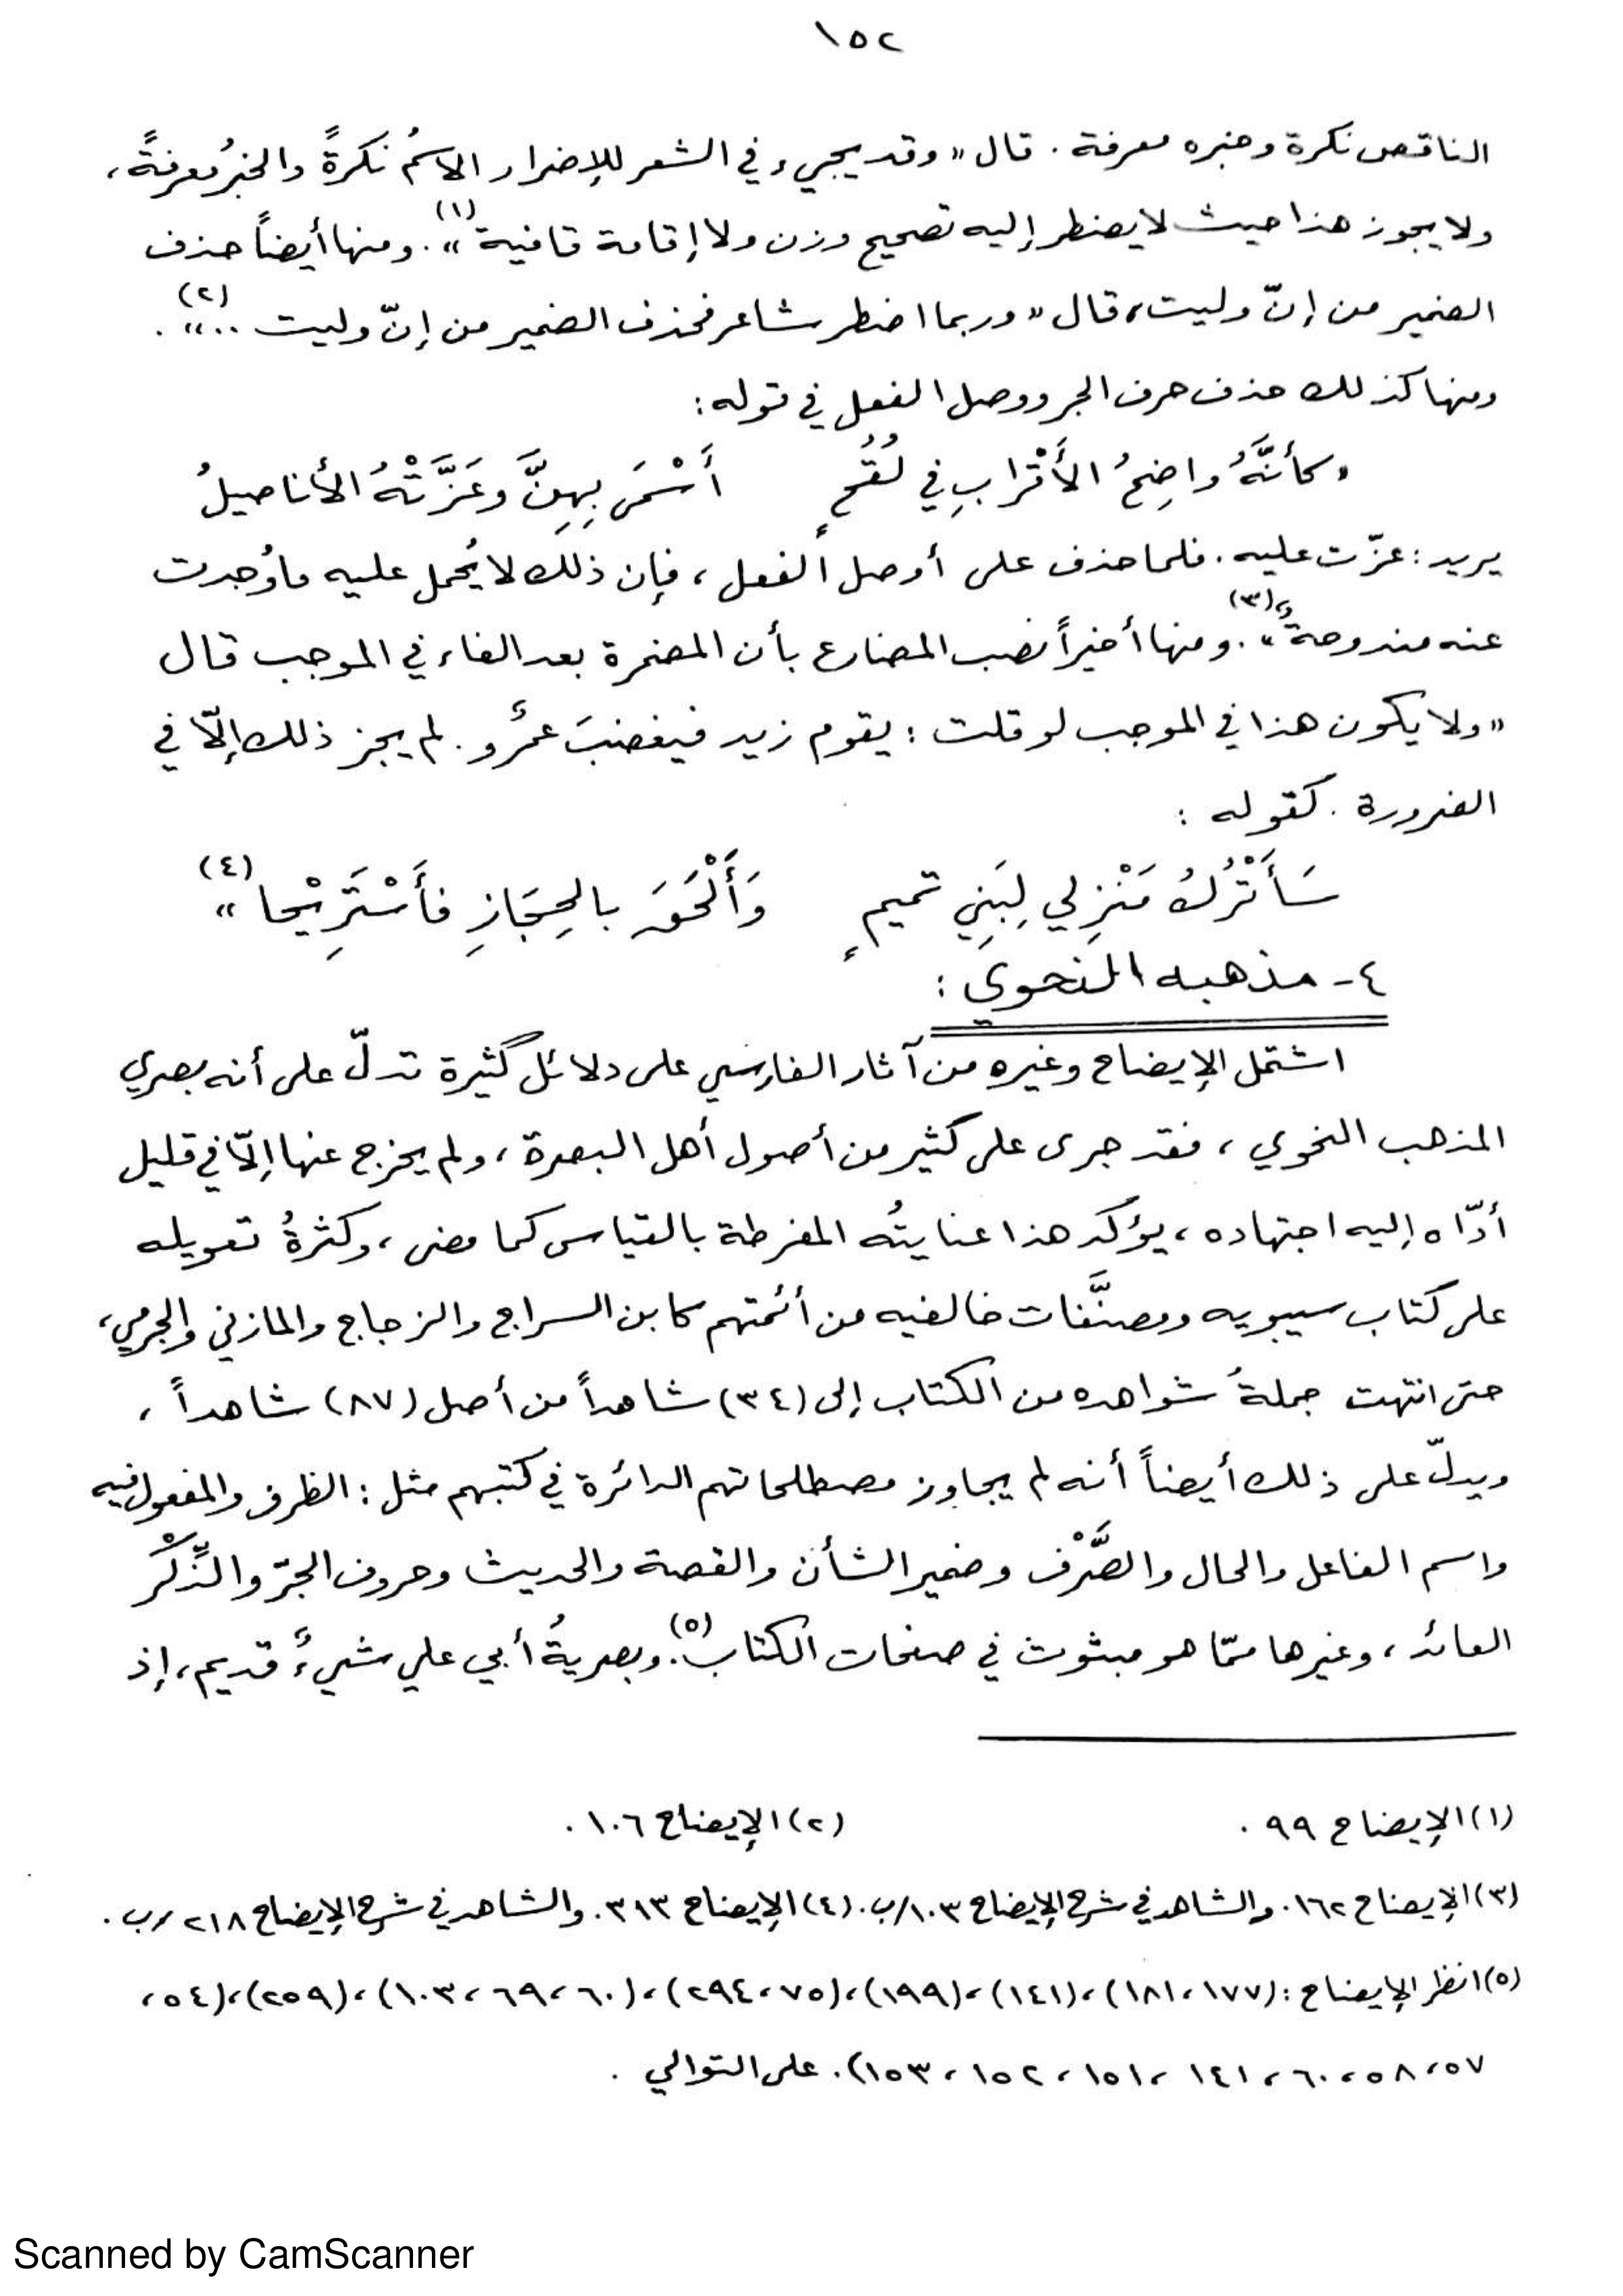 ١٥٢
الناقص نكرة وخبره معرفة. قال «وقد يجيء في الشعر للإضرار الاسمُ نكرةً والخبرُ معرفةً،
ولا يجوز هذا حيث لا يضطر إليه تصحيح وزن ولا إقامة قافية»(١). ومنها أيضاً حذف
الضمير من إنّ وليت، قال «وربما اضطر شاعر فحذف الضمير من إنّ وليت ..»(٢).
ومنها كذلك حذف حرف الجر ووصل الفعل في قوله:
«كأنَّهُ واضِحُ الأَقْرابِ في لُقُحٍ أَسْمَى بِهِنَّ وعَزَّتْهُ الأناصيلُ
يريد: عزّت عليه. فلما حذف على أوصل الفعل، فإن ذلك لا يُحمل عليه ما وُجدت
عنه مندوحةٌ»(٣). ومنها أخيراً نصب المضارع بأن المضمرة بعد الفاء في الموجب قال
«ولا يكون هذا في الموجب لو قلت: يقوم زيد فيغضبَ عمرٌو. لم يجز ذلك إلّا في
الضرورة. كقوله:
سَأَتْرُكُ مَنْزِلي لِبَنِي تميمٍ وَأَلْحَقَ بالحِجَازِ فأَسْتَرِيْحا»(٤)
٤- مذهبه النحوي:
اشتمل الإيضاح وغيره من آثار الفارسي على دلائل كثيرة تدلّ على أنه بصري
المذهب النحوي، فقد جرى على كثير من أصول أهل البصرة، ولم يخرج عنها إلّا في قليل
أدّاه إليه اجتهاده، يؤكد هذا عنايتُه المفرطة بالقياس كما مضى، وكثرةُ تعويله
على كتاب سيبويه ومصنَّفات خالفيه من أئمتهم كابن السراج والزجاج والمازني والجرمي،
حتى انتهت جملةُ شواهده من الكتاب إلى (٣٤) شاهداً من أصل (٨٧) شاهداً،
ويدلّ على ذلك أيضاً أنه لم يجاوز مصطلحاتهم الدائرة في كتبهم مثل: الظرف والمفعول فيه
واسم الفاعل والحال والصَّرْف وضمير الشأن والقصة والحديث وحروف الجرّ والذِّكْر
العائد، وغيرها ممّا هو مبثوث في صفحات الكتاب(٥). وبصريةُ أبي علي شيءٌ قديم، إذ
(١) الإيضاح ٩٩.
(٢) الإيضاح ١٠٦.
(٣) الإيضاح ١٦٢. والشاهد في شرح الإيضاح ١٠٣/ب. (٤) الإيضاح ٣١٣. والشاهد في شرح الإيضاح ٢١٨/ب.
(٥) انظر الإيضاح: (١٧٧، ١٨١)، (١٤١)، (١٩٩)، (٧٥، ٢٩٤)، (٦٠، ٦٩، ١٠٣)، (٢٥٩)، (٥٤،
٥٧، ٥٨، ٦٠، ١٤١، ١٥١، ١٥٢، ١٥٣). على التوالي.
Scanned by CamScanner